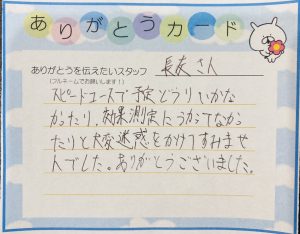 ありがとうカード
ありがとうを伝えたいスタッフ 長友さん
(フルネームでお願いします!)
スピードコースで予定どうりいかな
かったり、効果測定にうかってなかっ
たりと大変迷惑をかけてすみませ
んでした。ありがとうございました。